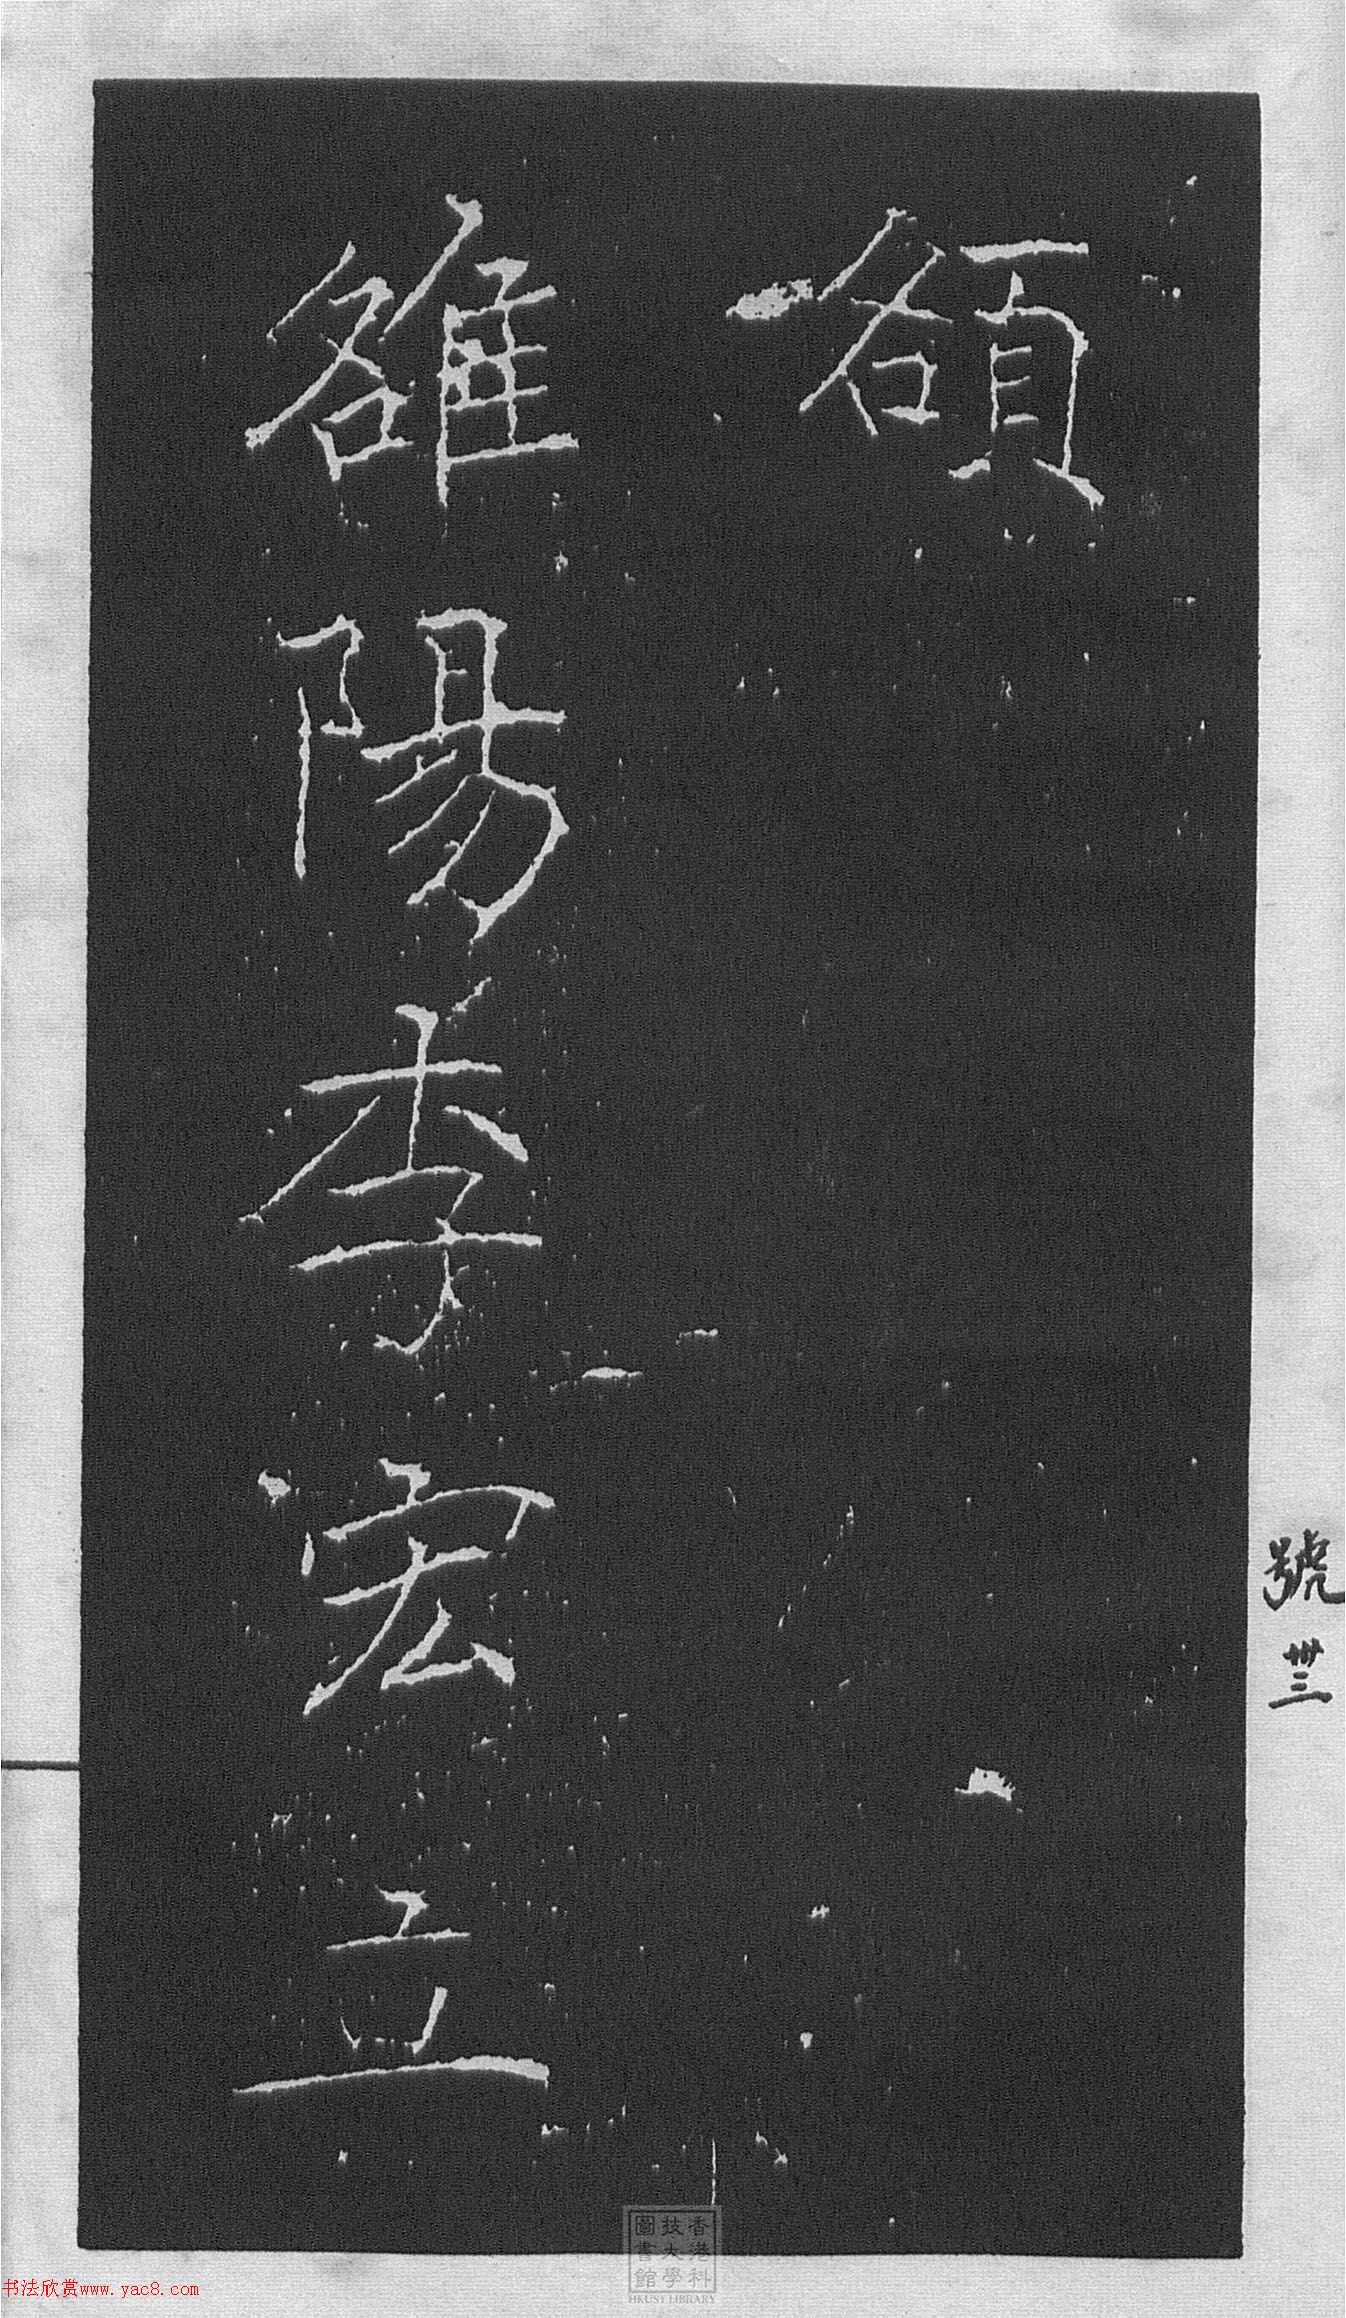 頟
雒陽李宏立
號卅三
香港科
技大學
圖書館
HKUST LIBRARY
书法欣赏www.yac8.com